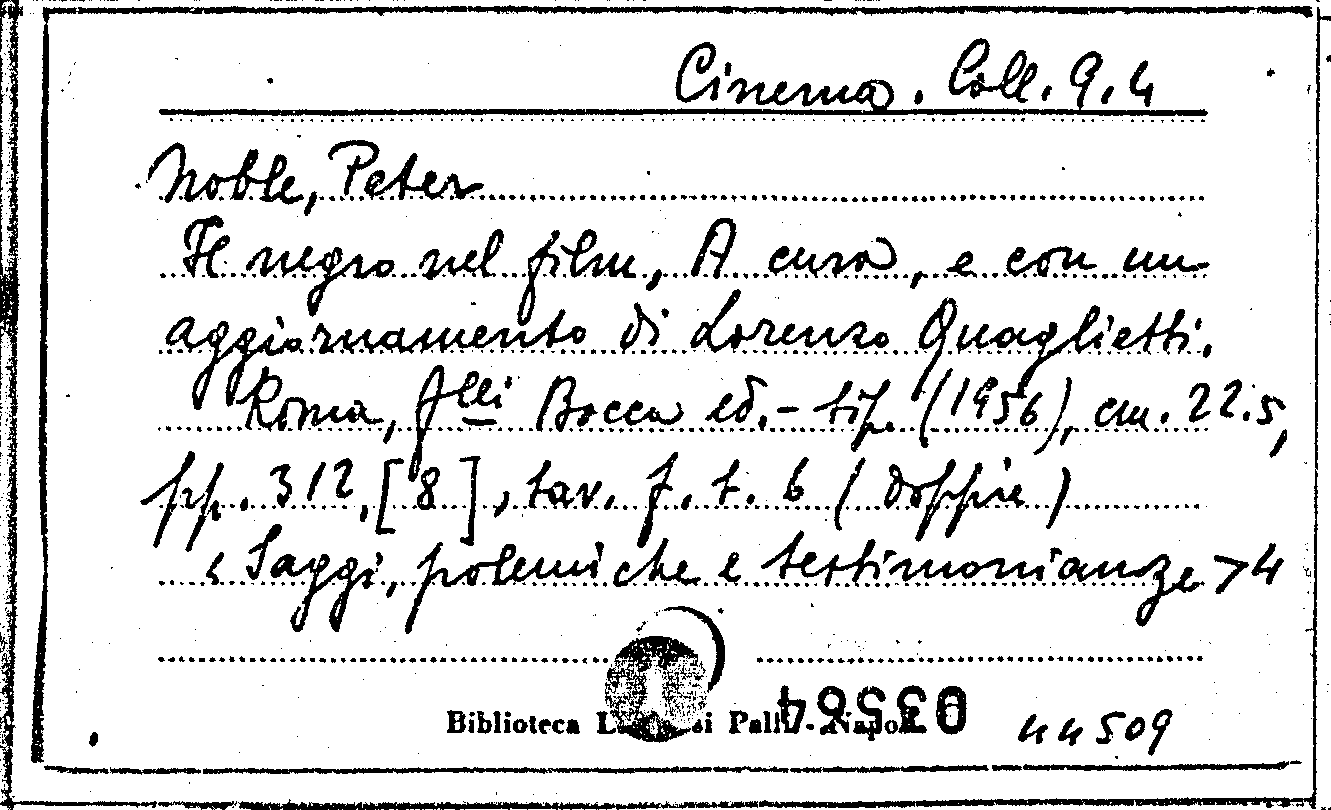 Cinema. Coll. 9.4
Noble, Peter
Il negro nel film, A cura, e con un
aggiornamento di Lorenzo Quaglietti.
Roma, f.lli Bocca ed.-tip. (1956), cm. 22.5,
pp. 312, [8], tav. f. t. 6 (doppie)
<Saggi, polemiche e testimonianze>4
Biblioteca Napoli
03564
44509